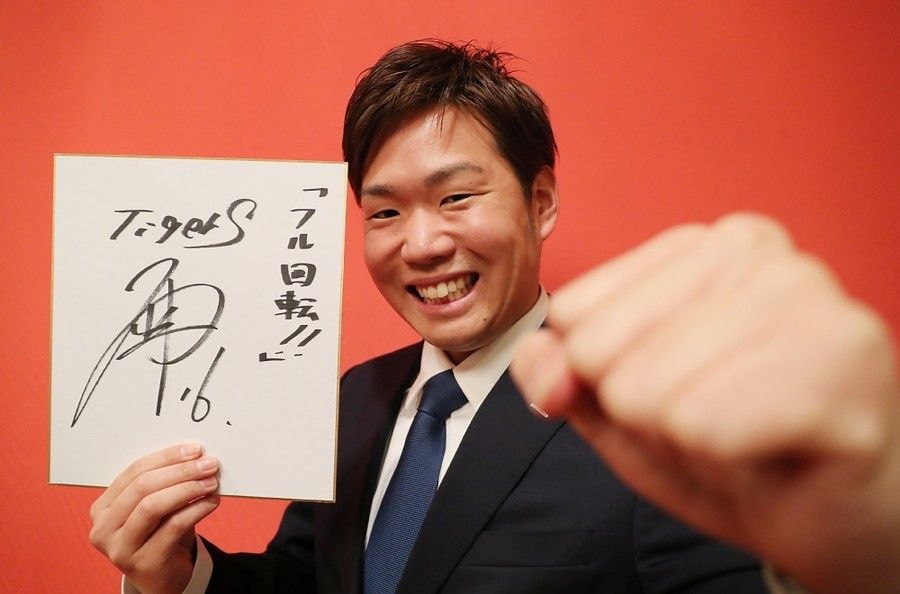 「フル回転!!」
Tigers
16.